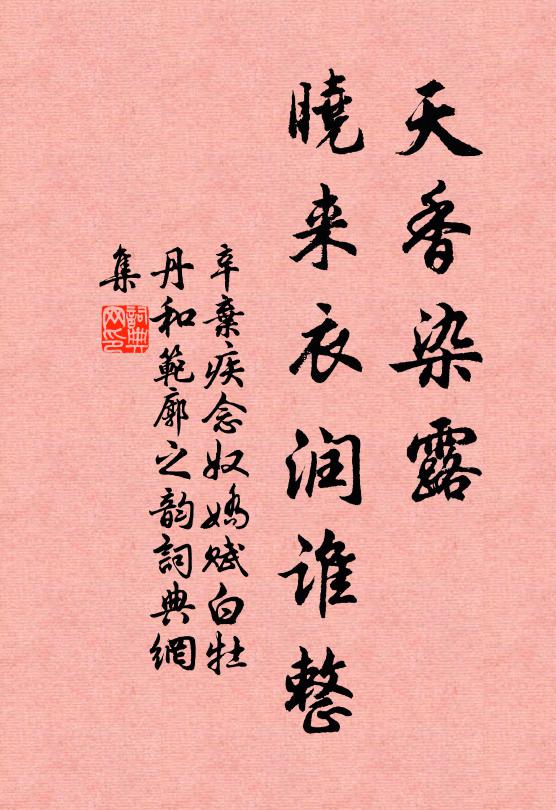 天香染露
曉来衣润誰整
辛棄疾念奴嬌賦白牡
丹和範廓之韵詞典網
集
詞典
网印